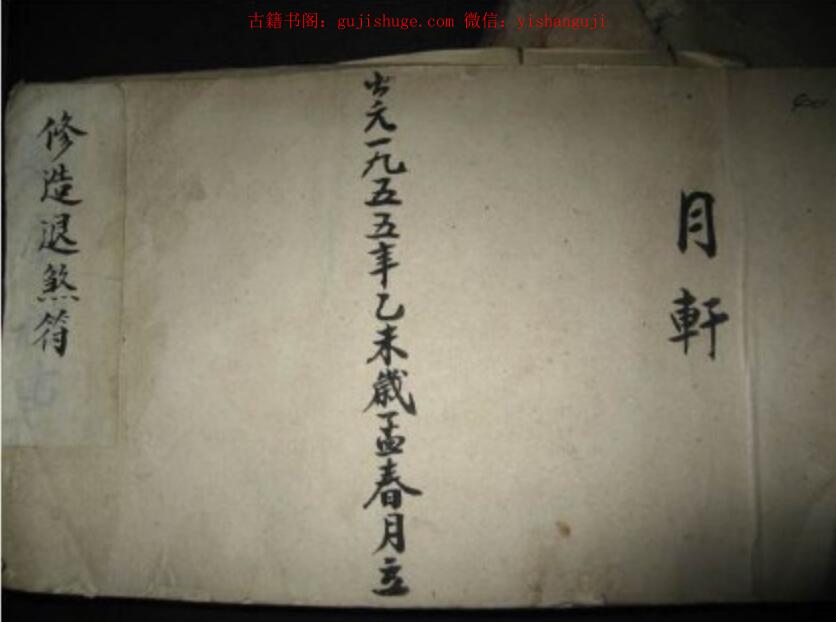 古籍书阁：gujishuge.com 微信：yishanguji
月軒
公元一九五五年乙未歲孟春月立
修造退煞符